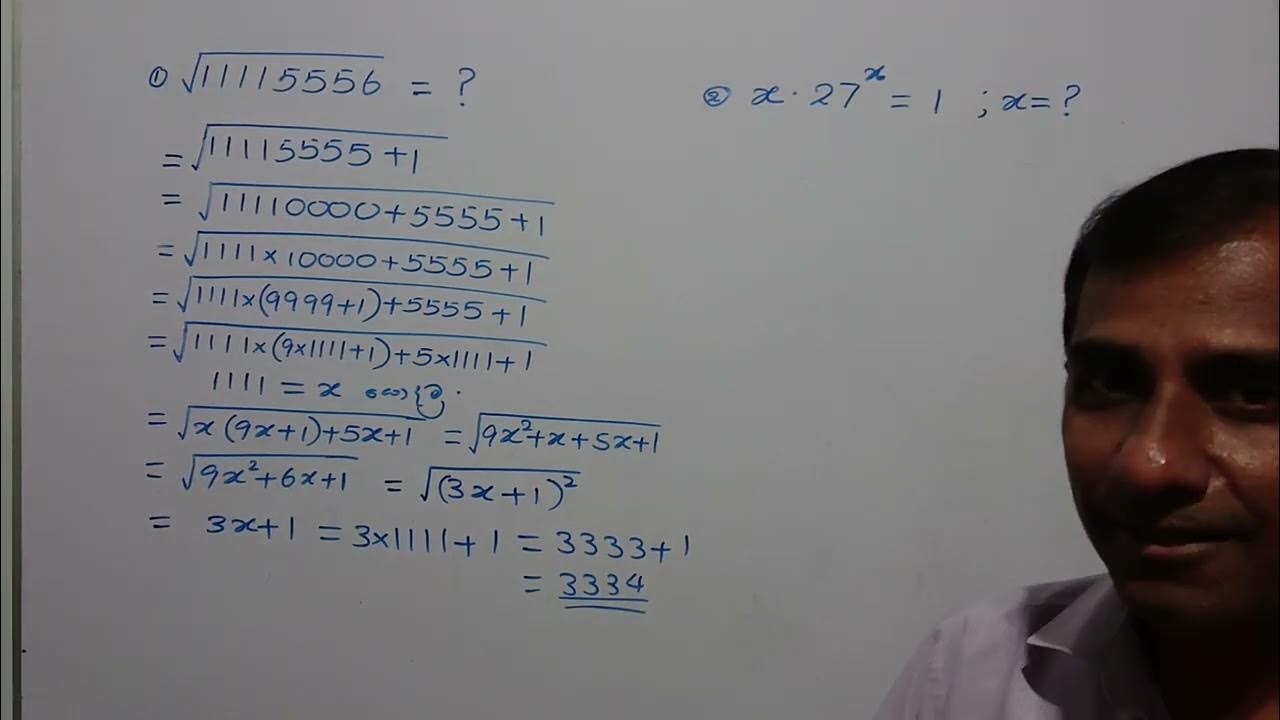 ① √11115556 = ?
= √11115555 + 1
= √11110000 + 5555 + 1
= √1111 × 10000 + 5555 + 1
= √1111 × (9999 + 1) + 5555 + 1
= √1111 × (9×1111 + 1) + 5×1111 + 1
1111 = x
= √x (9x + 1) + 5x + 1 = √9x² + x + 5x + 1
= √9x² + 6x + 1 = √(3x + 1)²
= 3x + 1 = 3×1111 + 1 = 3333 + 1
= 3334
② x · 27ˣ = 1 ; x = ?